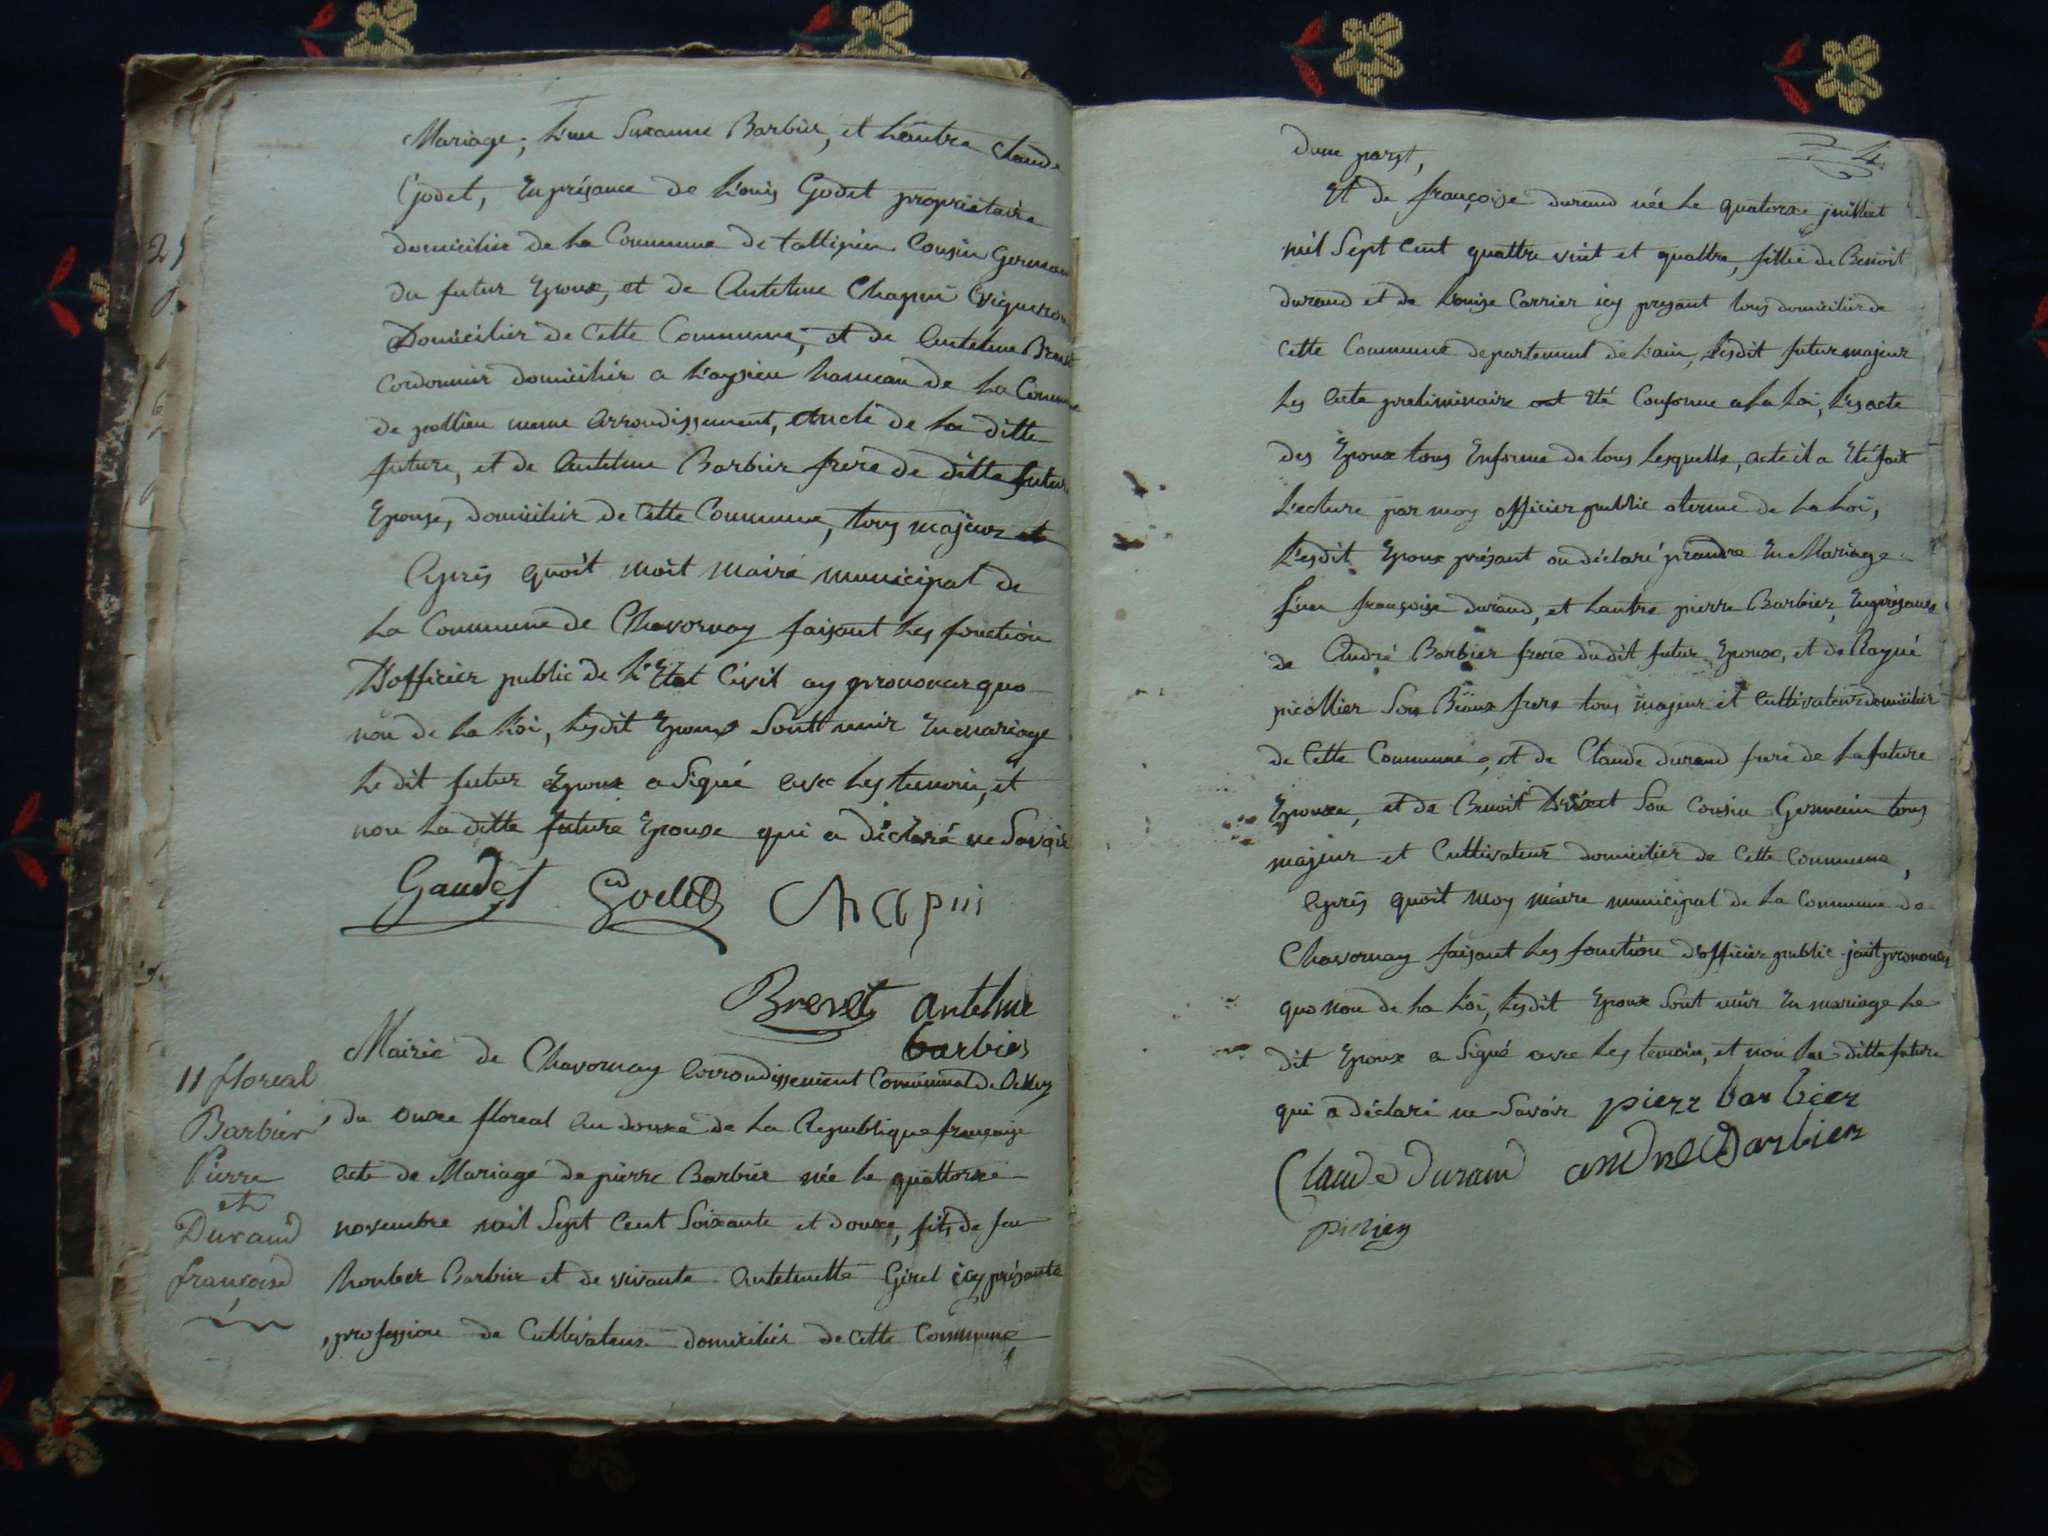 Mariage, l'une Suzanne Barbier, et l'autre Claude
Godet, En présance de Louis Godet propriétaire
domicilier de la Commune de talissieu Cousin Germain
du futur Epoux, et de Antelme Chapui vigneron
Domicilier de Cette Commune, et de Antelme Brevet
Cordonnier domicilier a Laysieu hameau de La Commune
de pollieu meme arrondissement, oncle de La ditte
future, et de Antelme Barbier frere de ditte future
Epouse, domicilier de Cette Commune, tous majeur et
Après quoit moit maire municipal de
La Commune de Chavornay faisant Les fonction
D'officier public de L'Etat Civil ay prononcer quo
non de La Loi, Lesdit Epoux Sont unir En mariage
Le dit futur Epoux a Signé avec Les temoin, et
non La ditte future Epouse qui a déclaré ne Savoir
Gaudet Godet Chapui
Brevet antelme
barbier
11 floreal
Barbier
Pierre
et
Durand
françoise
Mairie de Chavornay Arrondissement Communal de Belley
du onze floreal An douze de La Republique française
Acte de Mariage de pierre Barbier née le quattorze
novembre mil Sept Cent Soixante et douze, fils de feu
Barbier et de vivante Antelmette Girel icy présante
profession de Cultivateur domicilier de Cette Commune
dune part,
4
Et de françoise durand née Le quatorze juillet
mil Sept Cent quattre vint et quattre, fillie de Benoit
durand et de Louise Carrier icy presant tous domicilier de
Cette Commune departement de L'ain, Lesdit futur majeur
Les Acte preliminaire ont Eté Conforme a La Loi, Les acte
des Epoux tous Enforme de tous Lesquelle, acte il a Eté fait
Lecture par moy officier public aterme de La Loi,
Lesdit Epoux présant on déclaré prandre En Mariage
L'un françoise durand, et Lautre pierre Barbier, En présance
de André Barbier frere dudit futur Epoux, et de
picollier Son Beaux frere tous majeur et Cultivateur domicilier
de Cette Commune, et de Claude durand frere de La future
Epouse, et de Benoit Son Cousin Germain tous
majeur et Cultivateur domicilier de Cette Commune,
Après quoit moy maire municipal de La Commune de
Chavornay faisant Les fonction d'officier public jait prononcer
quo non de La Loi, Lesdit Epoux Sont unir En mariage Le
dit Epoux a Signé avec Les temoin, et non La ditte future
qui a déclaré ne Savoir pierr barbier
Claude durand andre Barbier